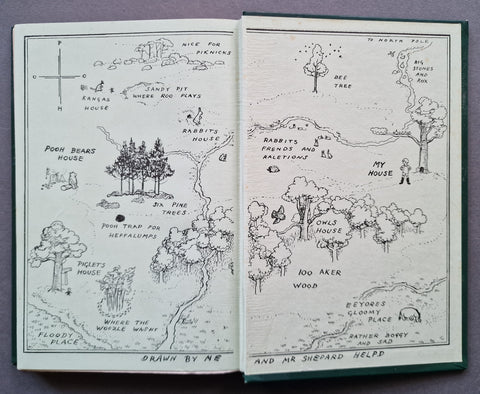 P
O
O
H
NICE FOR
PIKNICKS
KANGAS
HOUSE
SANDY PIT
WHERE ROO PLAYS
RABBITS
HOUSE
POOH BEARS
HOUSE
SIX PINE
TREES
POOH TRAP FOR
HEFFALUMPS
PIGLETS
HOUSE
WHERE THE
WOOZLE WASNT
FLOODY
PLACE
DRAWN BY ME
TO NORTH POLE
BIG
STONES
AND
ROX
BEE
TREE
RABBITS
FRENDS AND
RALETIONS
MY
HOUSE
OWLS
HOUSE
100 AKER
WOOD
EEYORES
GLOOMY
PLACE
RATHER BOGGY
AND SAD
AND MR SHEPARD HELPD